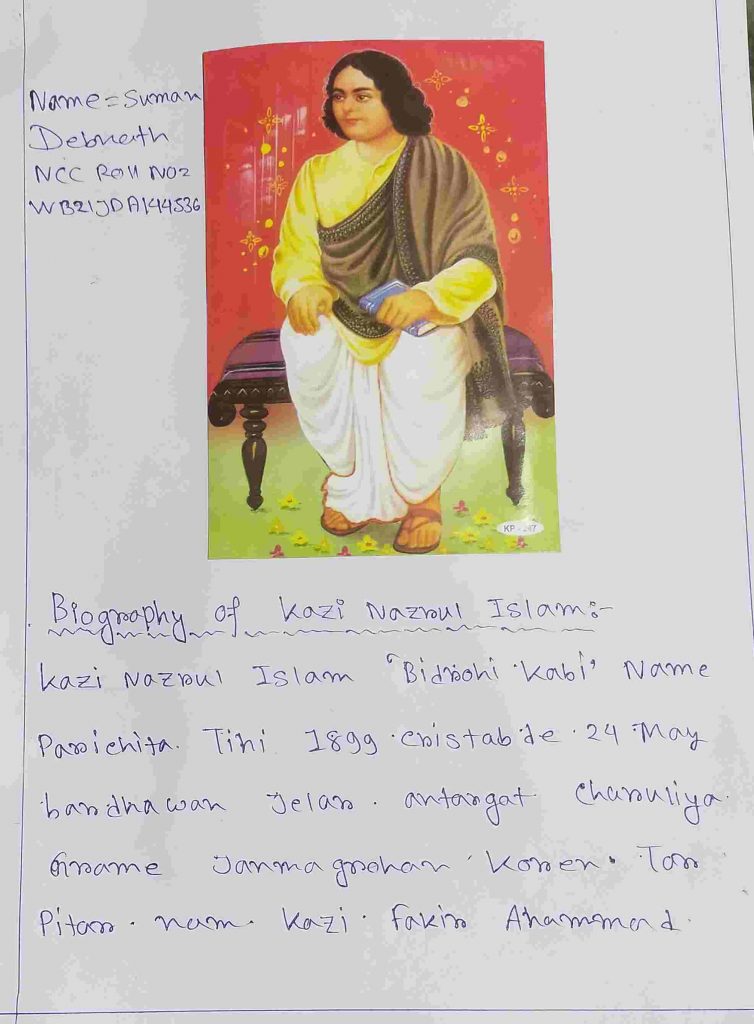 Name = Suman
Debnath
NCC Roll NO2
WB21JDA144536
KP - 247
Biography of Kazi Nazrul Islam:-
Kazi Nazrul Islam "Bidrohi Kabi" Name
Parichita. Tini 1899 cristabde 24 May
bardhawan Jelar antargat Churuliya
Grame Janmagrohan Koren. Tar
Pitar nam Kazi Fakir Ahammad.